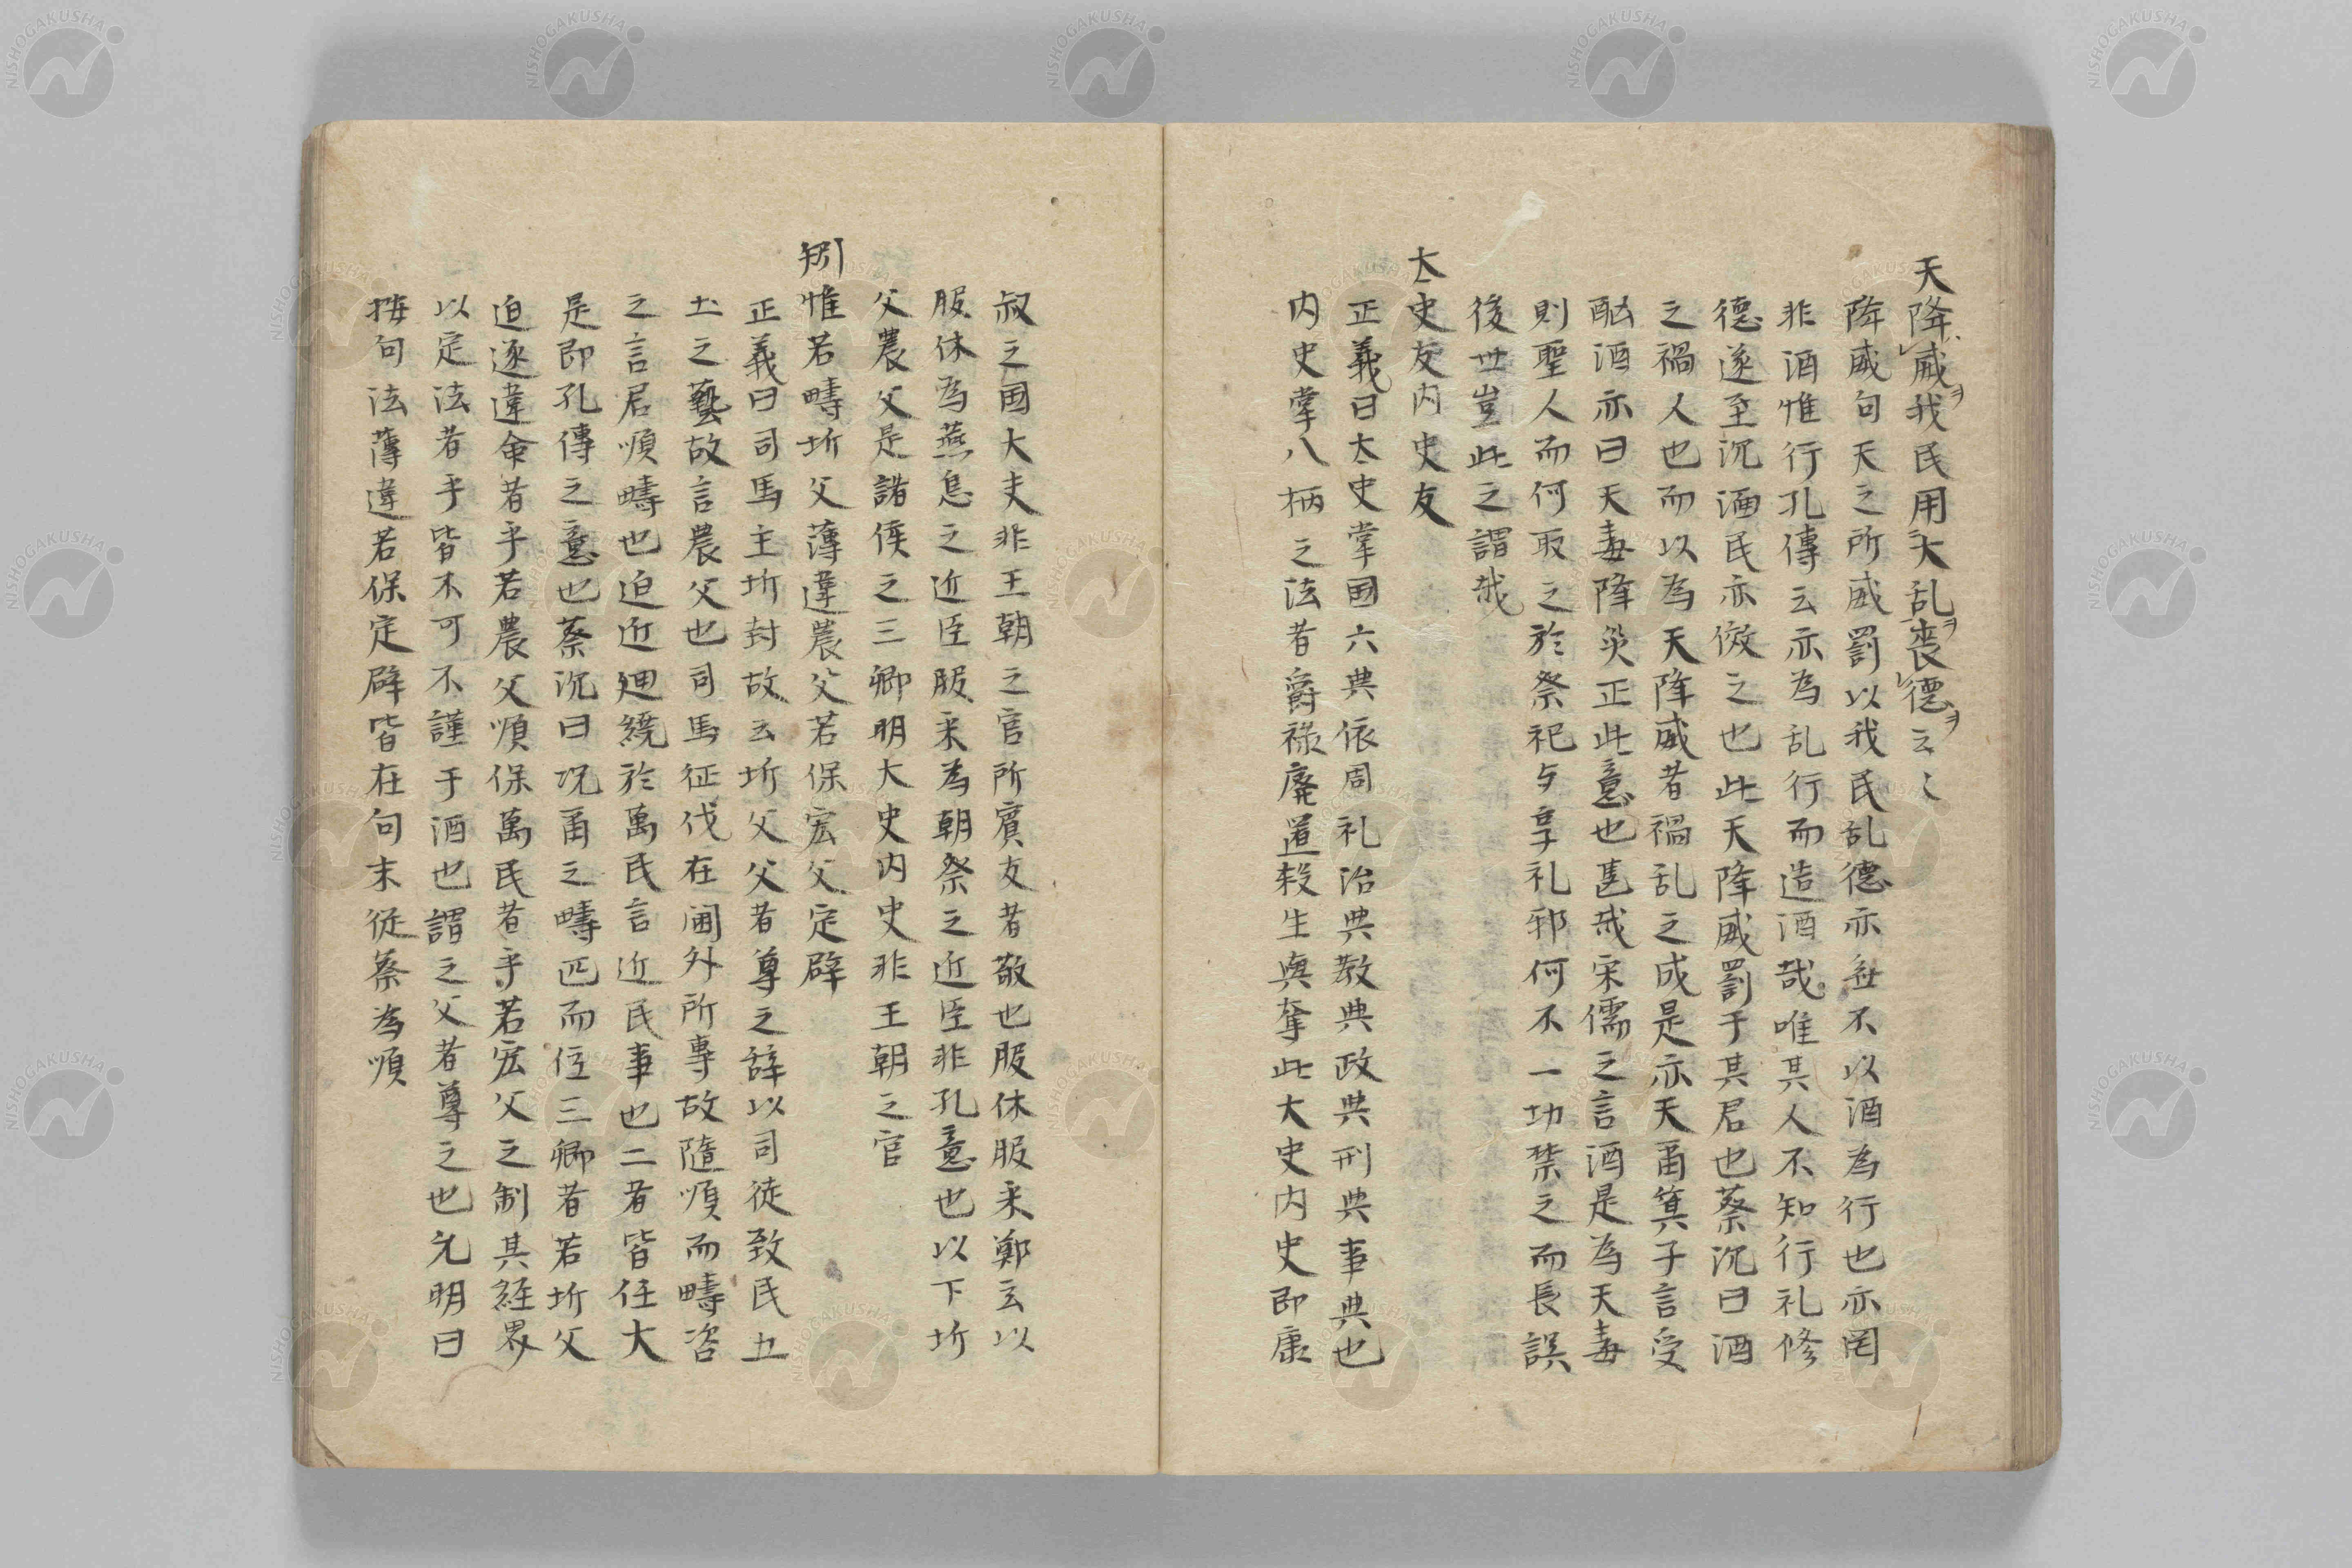 天降威我民用大乱喪德云〻
降威句天之所威罰以我民乱德亦無不以酒為行也亦罔
非酒惟行孔傳云亦為乱行而造酒哉唯其人不知行礼修
德遂至沉湎民亦傚之也此天降威罰于其君也蔡沉曰酒
之禍人也而以為天降威者禍乱之成是亦天甫箕子言受
酗酒亦曰天毒降災正此意也甚哉宋儒之言酒是為天毒
則聖人而何取之於祭祀与享礼邪何不一切禁之而長誤
後世豈此之謂哉
太史友内史友
正義曰太史掌国六典依周礼治典教典政典刑典事典也
内史掌八柄之法者爵祿廃置殺生與奪此大史内史即康
叔之国大夫非王朝之官所賓友者敬也服休服采鄭云以
服休為燕息之近臣服采為朝祭之近臣非孔意也以下圻
父農父是諸侯之三卿明大史内史非王朝之官
矧惟若疇圻父薄違農父若保宏父定辟
正義曰司馬主圻封故云圻父父者尊之辞以司徒致民五
土之藝故言農父也司馬征伐在閫外所專故隨順而疇咨
之言君順疇也迫近廻繞於萬民言近民事也二者皆任大
是即孔傳之意也蔡沉曰况甫之疇匹而位三卿者若圻父
迫逐違命者乎若農父順保萬民者乎若宏父之制其経界
以定法者乎皆不可不謹于酒也謂之父者尊之也元明曰
按句法薄違若保定辟皆在句末従蔡為順